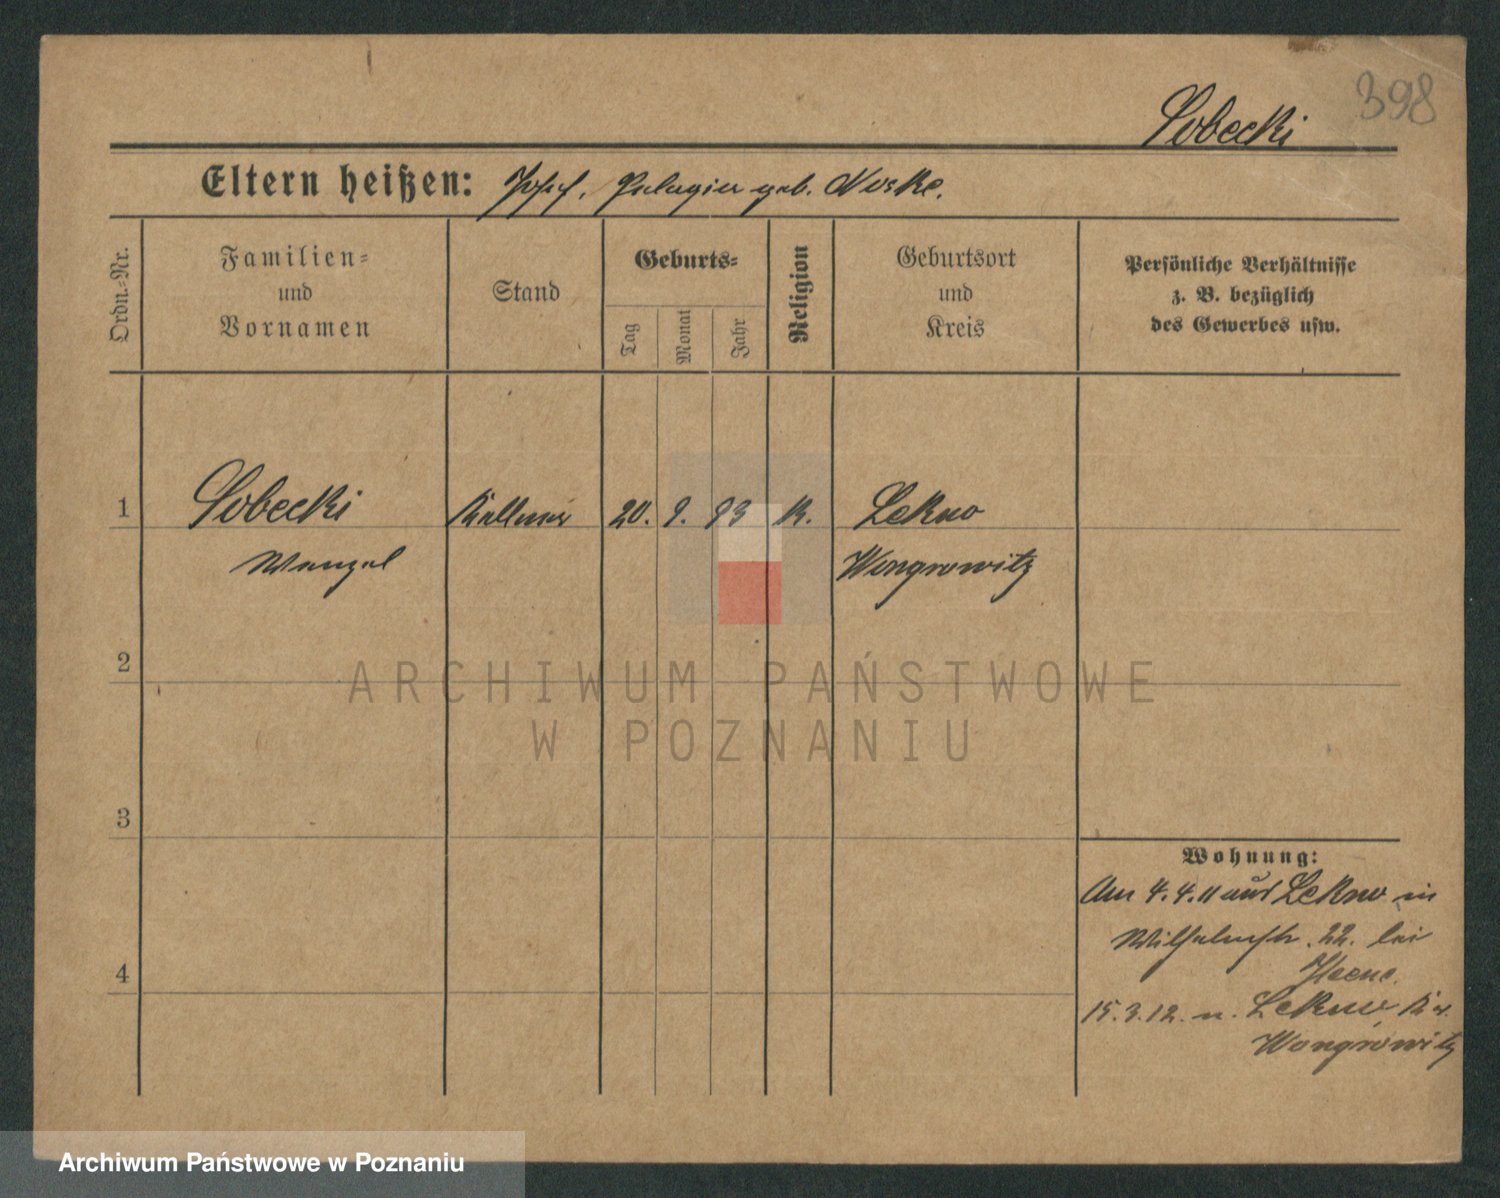 398
Sobecki
Eltern heißen: Josef, Pelagia geb. Noske.
Ordn.=Nr.
Familien=
und
Vornamen
Stand
Geburts=
Tag
Monat
Jahr
Religion
Geburtsort
und
Kreis
Persönliche Verhältnisse
z. B. bezüglich
des Gewerbes usw.
1 Sobecki Kellner 20. 9. 93 K. Lekno
Wenzel Wongrowitz
2
3
4
Wohnung:
Am 4.4.11 aus Lekno in
Wilhelmstr. 22. bei
15.3.12. n. Lekno, Kr.
Wongrowitz
ARCHIWUM PAŃSTWOWE
W POZNANIU
Archiwum Państwowe w Poznaniu